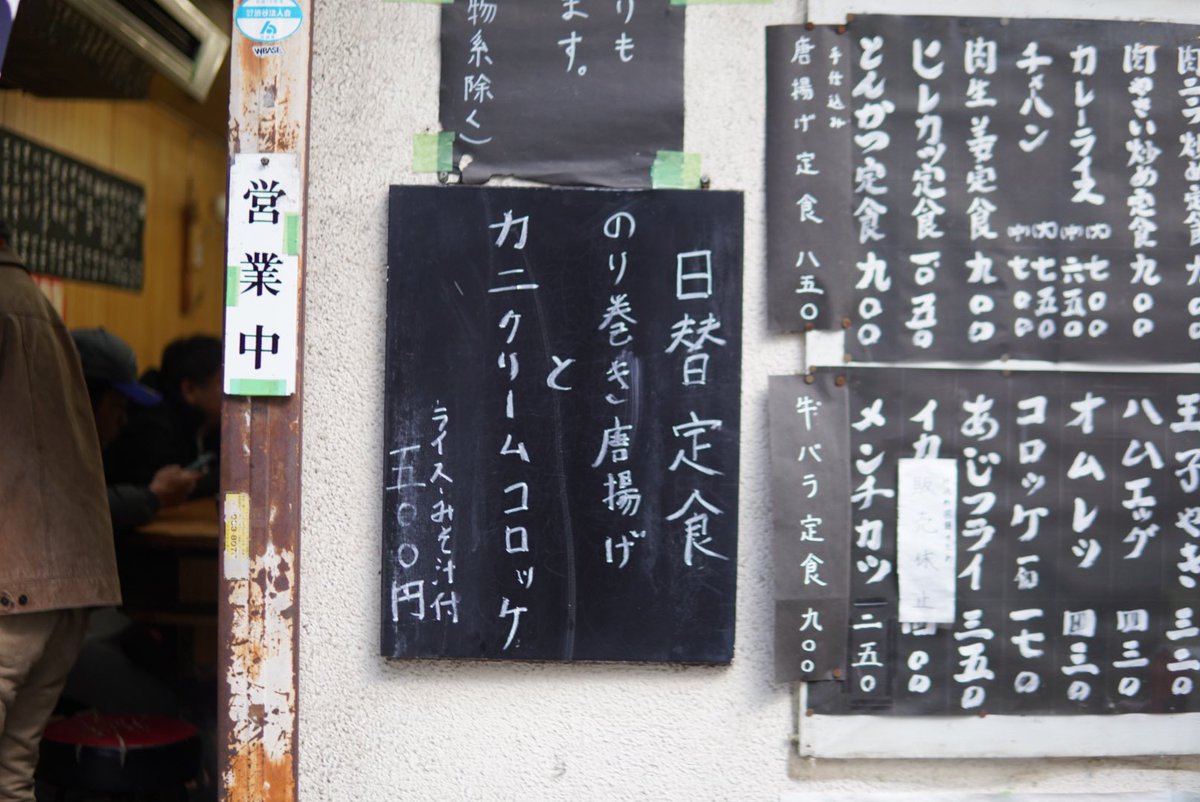 渋谷法人会
WBASE
営業中
りも
ます。
物系除く)
日替定食
のり巻き唐揚げ
と
カニクリームコロッケ
ライス・みそ汁付
五〇〇円
肉やさい炒め定食 九〇〇
カレーライス (大)七〇〇 (中)六五〇
チャハン (大)七五〇 (中)七〇〇
肉生姜定食 九〇〇
ヒレカツ定食 一〇五〇
とんかつ定食 九〇〇
手仕込み
唐揚げ定食 八五〇
玉子やき 三二〇
ハムエッグ 四三〇
オムレツ 四三〇
コロッケ 一個 一七〇
あじフライ 三五〇
イカ
販売休止
四〇〇
メンチカツ 二五〇
牛バラ定食 九〇〇